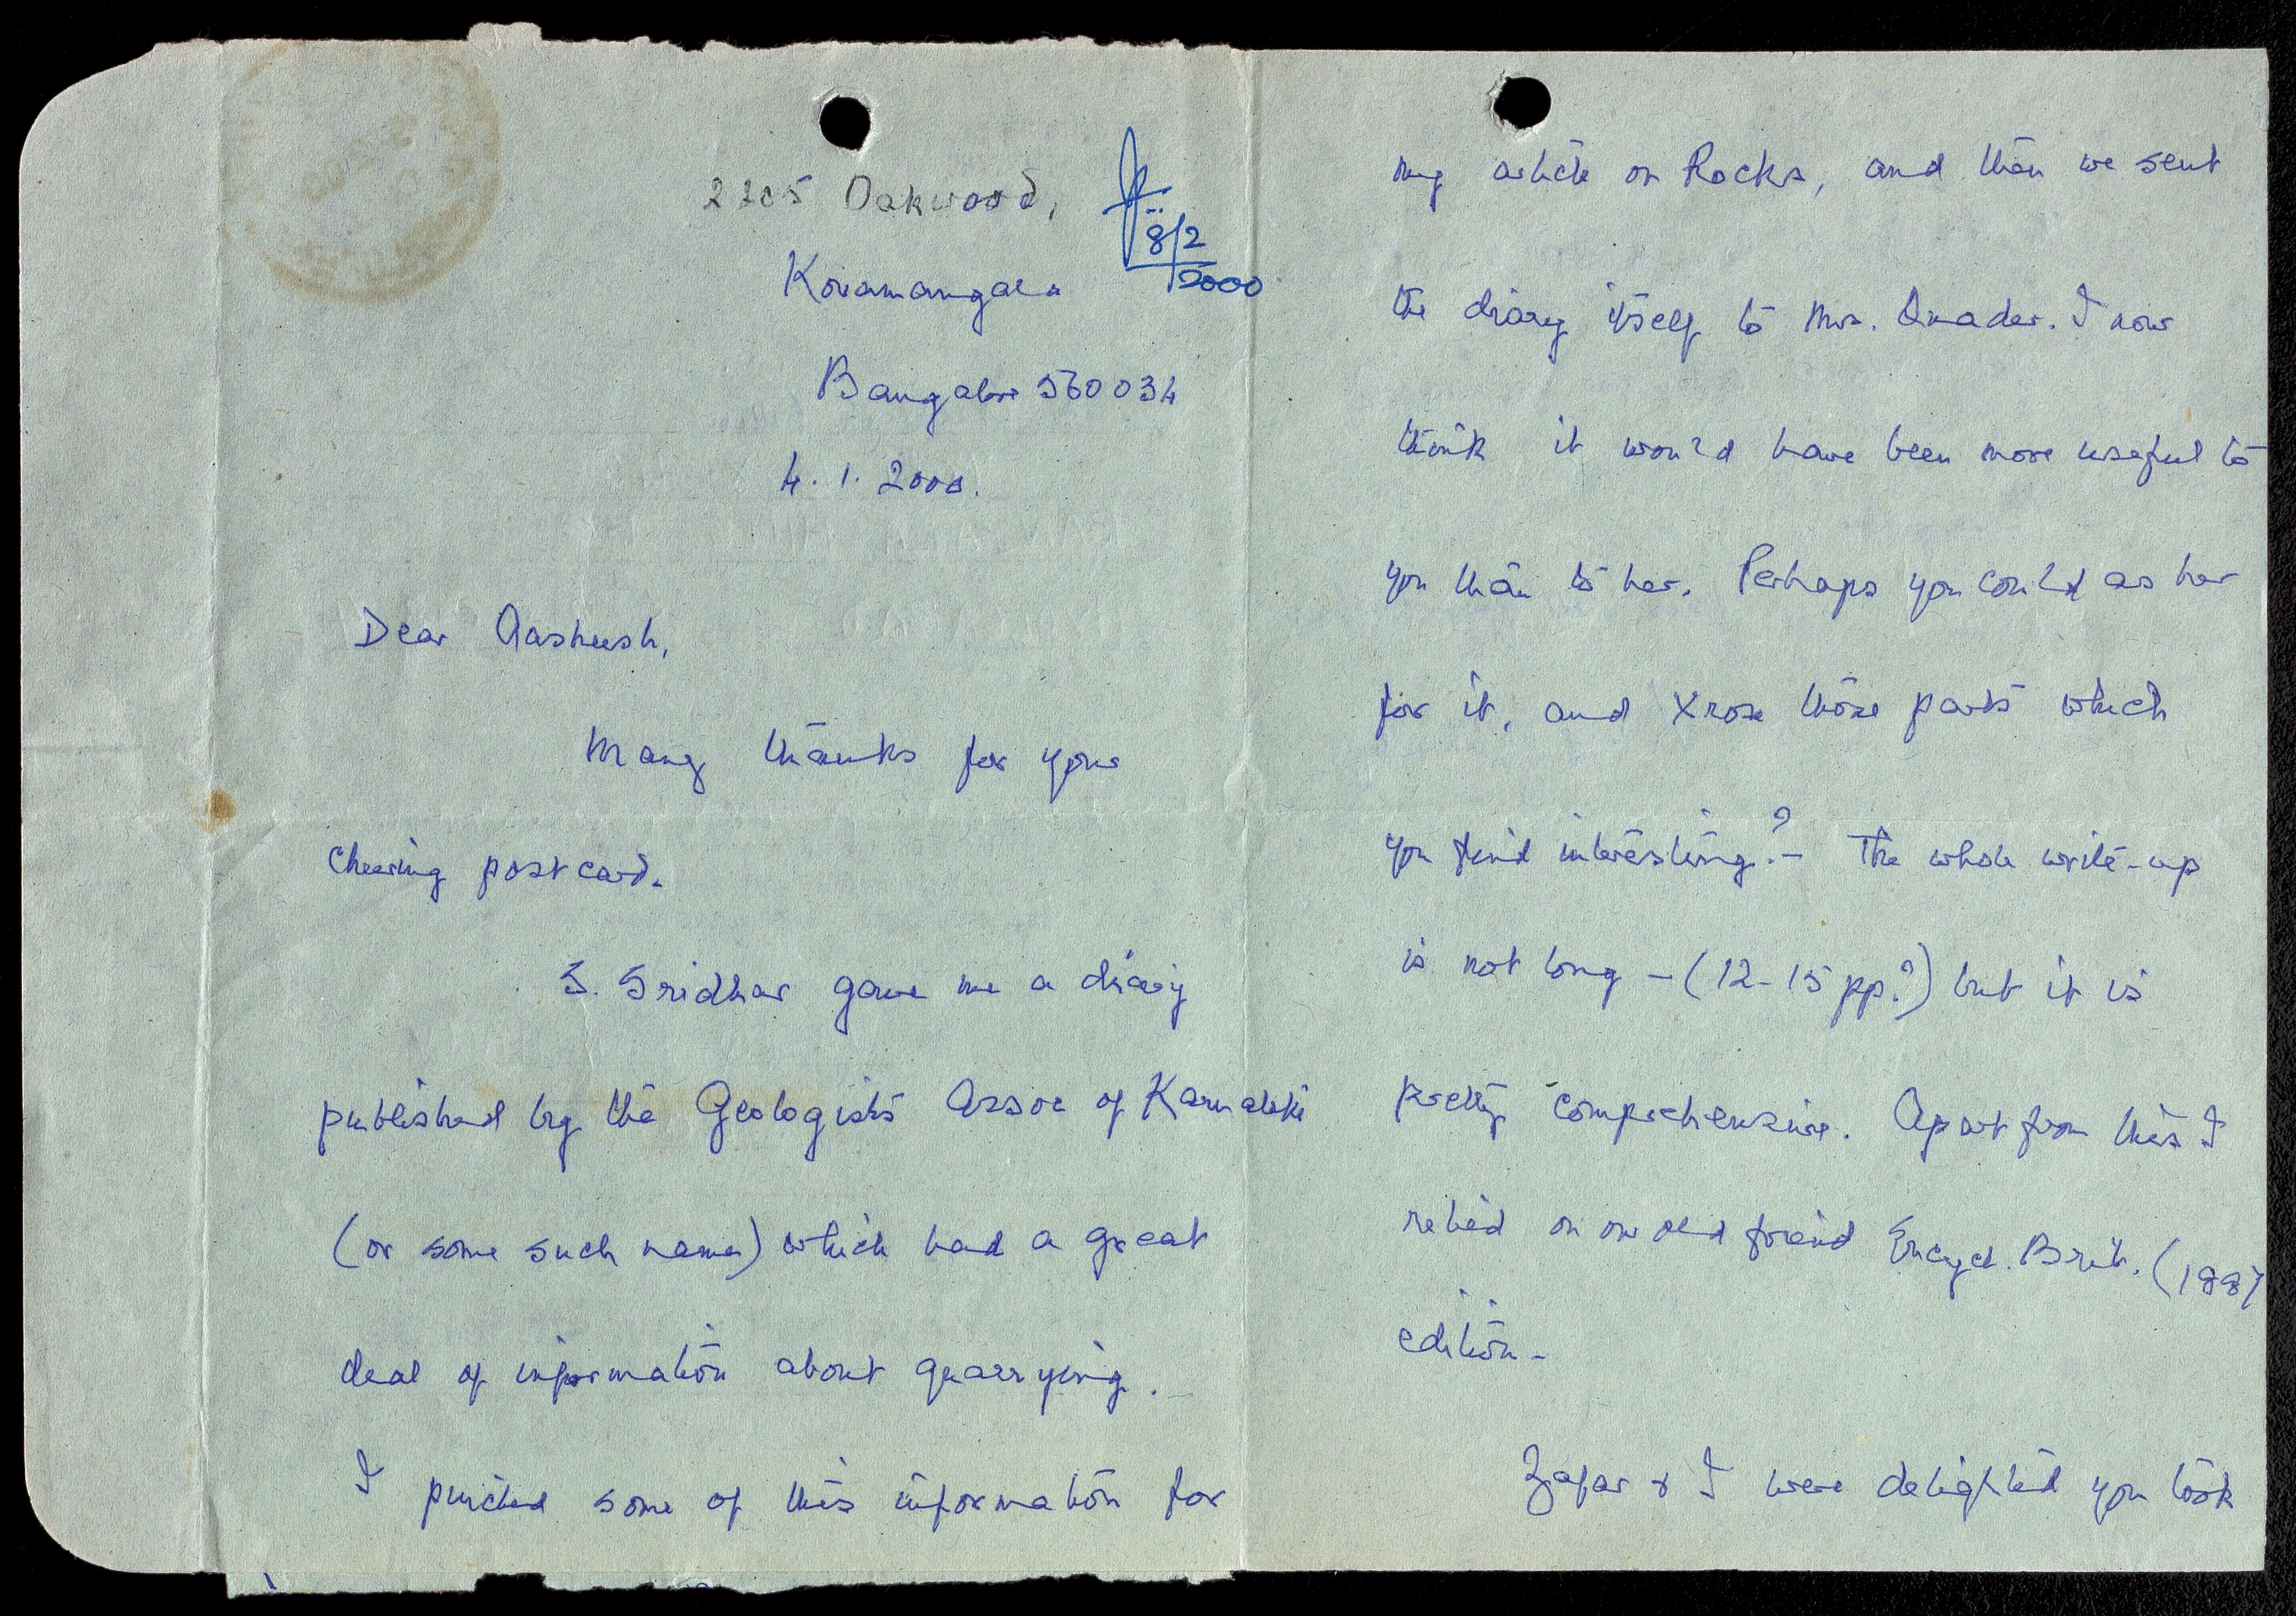 2205 Oakwood,
8/2
2000
Koramangala
Bangalore 560034
4. 1. 2000.
Dear Aasheesh,
Many thanks for your
cheering postcard.
S. Sridhar gave me a diary
published by the Geologists Assoc of Karnatki
(or some such name) which had a great
deal of information about quarrying.
I pinched some of this information for
my article on Rocks, and then we sent
the diary itself to Mrs. Quader. I now
think it would have been more useful to
you than to her. Perhaps you could as her
for it, and Xrox those parts which
you find interesting? - The whole write-up
is not long - (12-15 pp?) but it is
pretty comprehensive. Apart from this I
relied on our old friend Encycl. Brit. (1887
edition -
Zafar & I were delighted you took